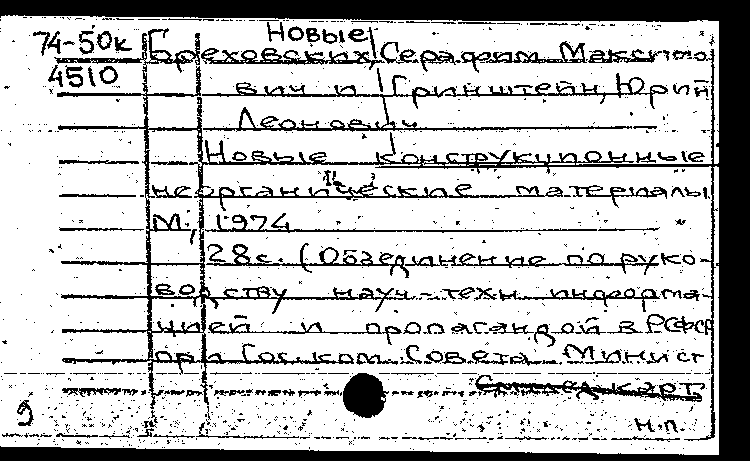 Новые
74-50к Бреховских, Серафим Максимо
4510 вич и Гринштейн, Юрий
Леонович
Новые конструкционные
неорганические материалы
М., 1974
28с. (Объединение по руко-
водству науч-техн. информа-
цией и пропагандой в РСФСР
при Гос.ком. Совета Минист
См. след. карт.
н.п.